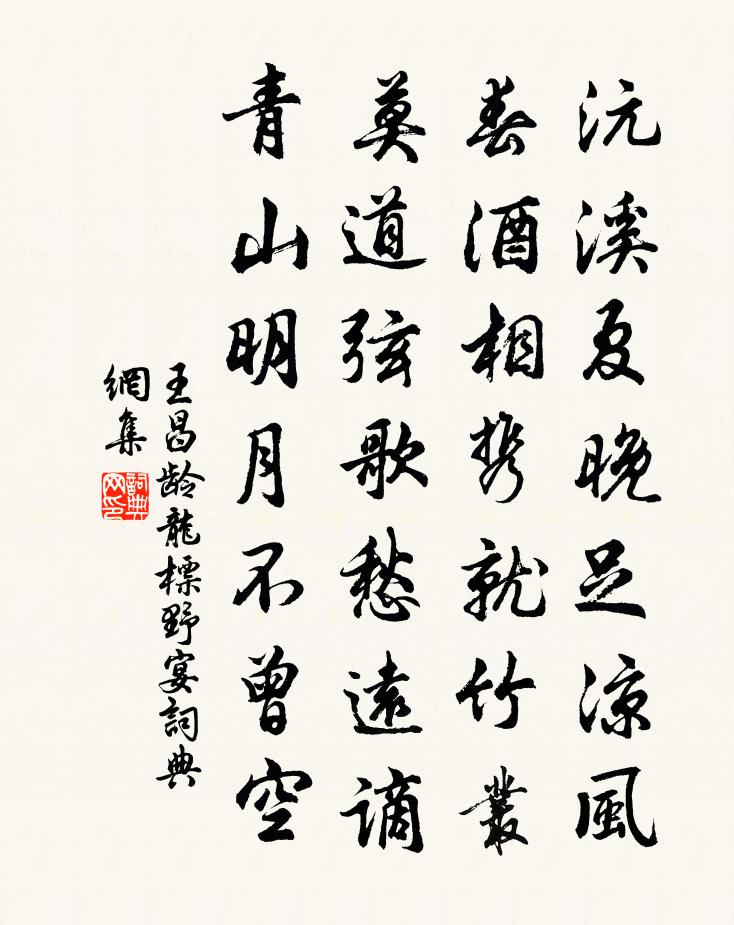 沅溪夏晚足涼風
春酒相携就竹叢
莫道弦歌愁遠謫
青山明月不曾空
王昌龄龍標野宴詞典
網集
詞典
网印